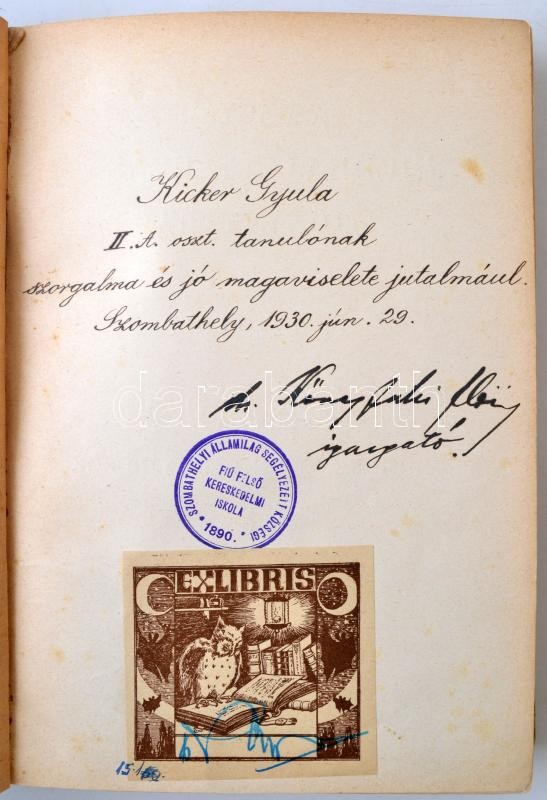 Kicker Gyula
II. A. oszt. tanulónak
szorgalma és jó magaviselete jutalmául.
Szombathely, 1930. jún. 29.
igazgató.
darabanth
SZOMBATHELYI ÁLLAMILAG SEGÉLYEZETT KÖZSÉGI
FIÚ FELSŐ
KERESKEDELMI
ISKOLA
* 1890. *
EX LIBRIS